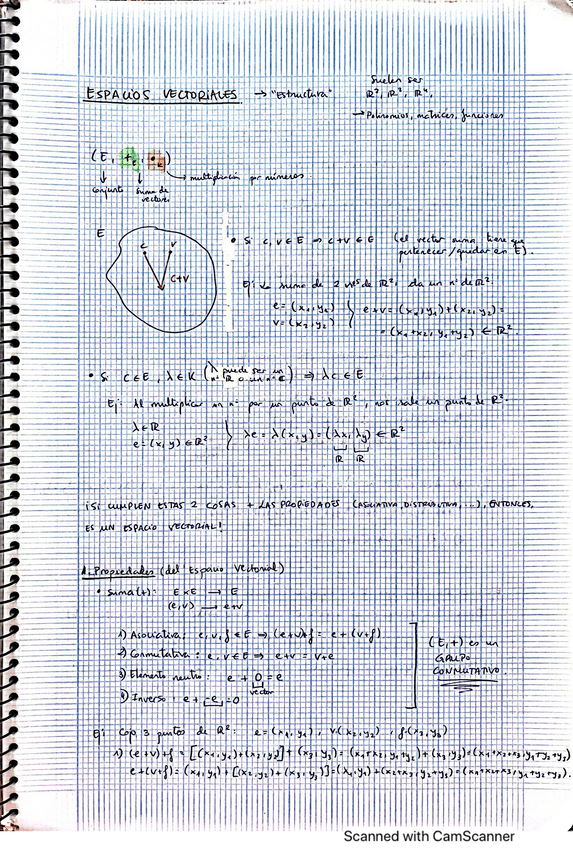 ESPACIOS VECTORIALES → "Estructura"
Suelen ser
ℝ², ℝ³, ℝ⁴,
→ Polinomios, matrices, funciones
(E, +e, •K)
→ multiplicación por números.
conjunto suma de
vectores
E
e v
e+v
• Si e, v ∈ E ⇒ e+v ∈ E (el vector suma tiene que
pertenecer/quedar en E).
Ej: La suma de 2 de ℝ², da un nº de ℝ².
e = (x₁, y₁)
v = (x₂, y₂)
e+v = (x₁, y₁)+(x₂, y₂) =
= (x₁+x₂, y₁+y₂) ∈ ℝ².
• Si e ∈ E, λ ∈ K (λ puede ser un
nº ℝ o un nº ℂ) ⇒ λe ∈ E.
Ej: Al multiplicar un nº por un punto de ℝ², nos sale un punto de ℝ².
λ ∈ ℝ
e = (x, y) ∈ ℝ²
λe = λ(x, y) = (λx, λy) ∈ ℝ²
ℝ ℝ
¡SI CUMPLEN ESTAS 2 COSAS + LAS PROPIEDADES (ASOCIATIVA, DISTRIBUTIVA, ...), ENTONCES,
ES UN ESPACIO VECTORIAL!
1. Propiedades (del Espacio Vectorial)
• Suma(+): E×E → E
(e,v) → e+v
1) Asociativa: e, v, f ∈ E ⇒ (e+v)+f = e+(v+f)
2) Conmutativa: e, v ∈ E ⇒ e+v = v+e
3) Elemento neutro: e + 0 = e
vector
4) Inverso: e + -e = 0
(E,+) es un
GRUPO
CONMUTATIVO.
Ej: Cojo 3 puntos de ℝ²: e=(x₁, y₁), v(x₂, y₂), f(x₃, y₃)
1) (e+v)+f = [(x₁,y₁)+(x₂,y₂)]+(x₃,y₃) = (x₁+x₂, y₁+y₂)+(x₃,y₃) = (x₁+x₂+x₃, y₁+y₂+y₃)
e+(v+f) = (x₁,y₁)+[(x₂,y₂)+(x₃,y₃)] = (x₁,y₁)+(x₂+x₃, y₂+y₃) = (x₁+x₂+x₃, y₁+y₂+y₃).
Scanned with CamScanner